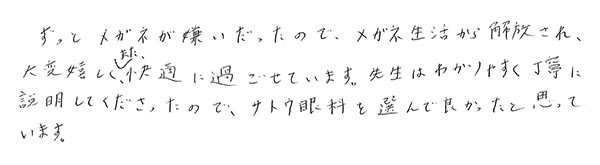 ずっとメガネが嫌いだったので、メガネ生活から解放され、
大変嬉しく、また、快適に過ごせています。先生はわかりやすく丁寧に
説明してくださったので、サトウ眼科を選んで良かったと思って
います。